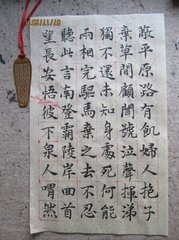 蔽平原路有飢婦人抱子
棄草間顧聞號泣聲揮涕
獨不還未知身處死何能
兩相完驅馬棄之去不忍
聽此言南登霸陵岸回首
望長安悟彼下泉人喟然